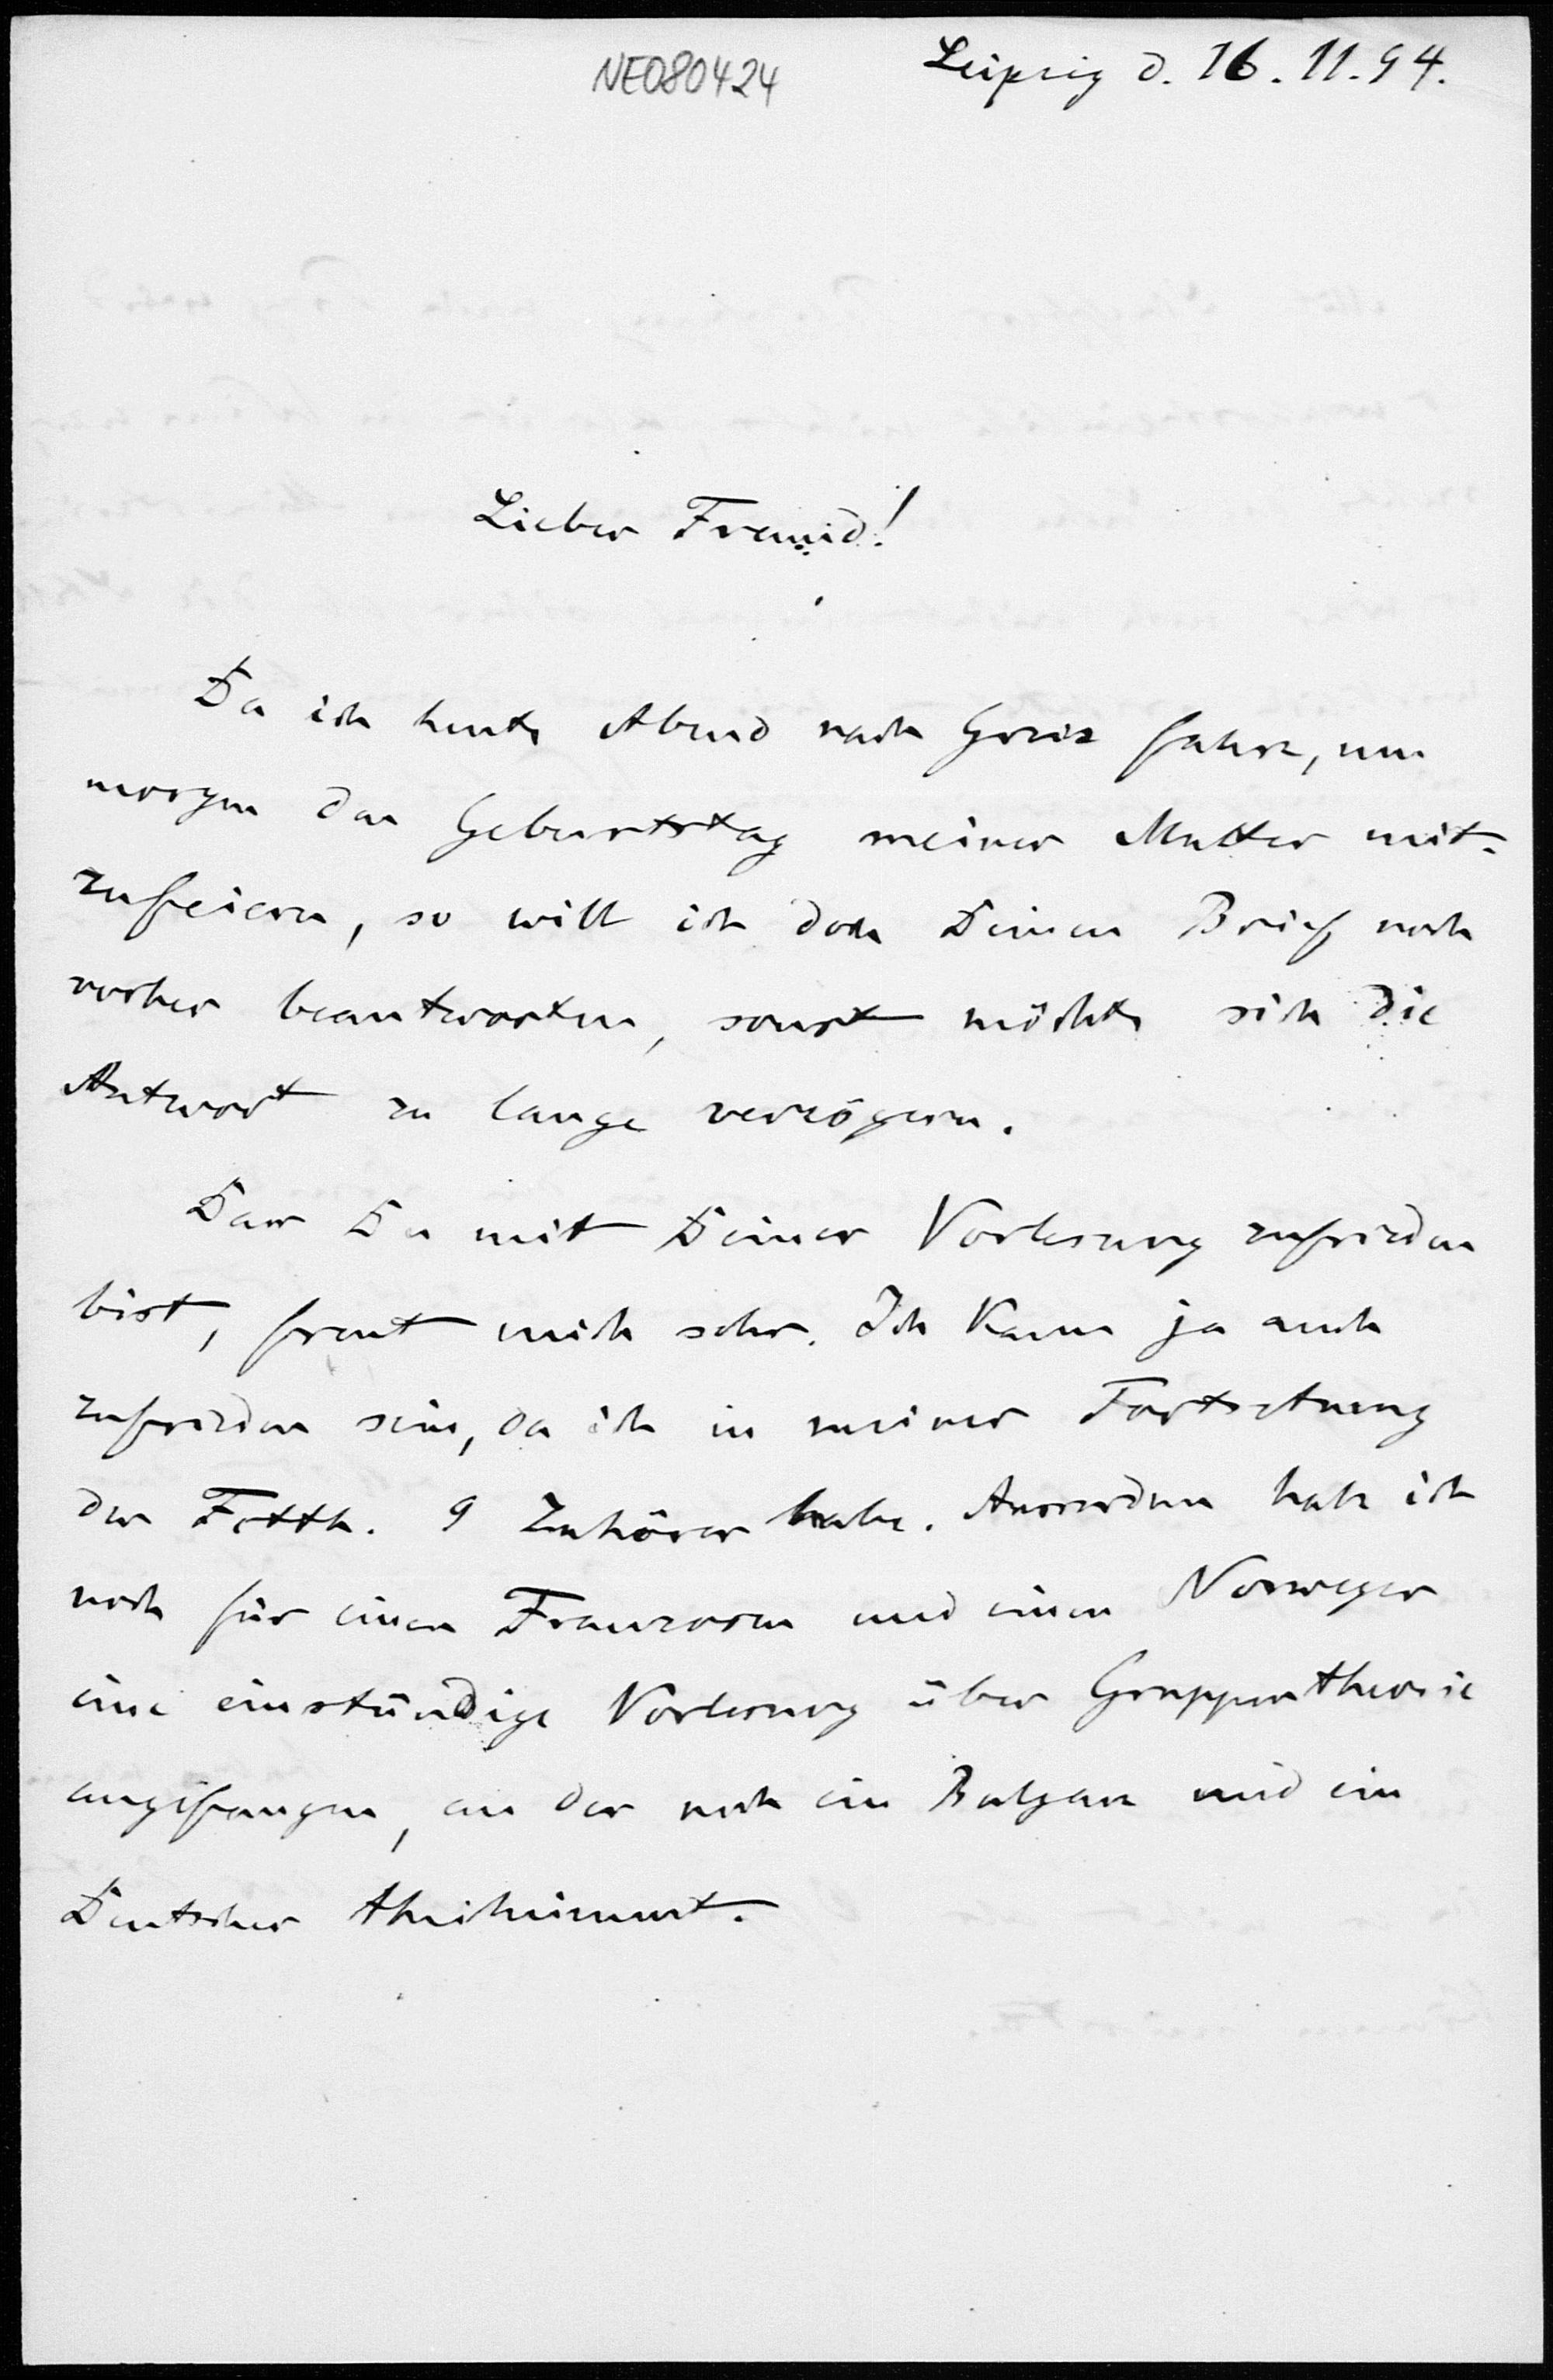 NE080424
Leipzig d. 16. 11. 94.
Lieber Freund!
Da ich heute Abend nach Greiz fahre, um
morgen den Geburtstag meiner Mutter mit-
zufeiern, so will ich doch Deinen Brief noch
vorher beantworten, sonst möchte sich die
Antwort zu lange verzögern.
Dass Du mit Deiner Vorlesung zufrieden
bist, freut mich sehr. Ich kann ja auch
zufrieden sein, da ich in meiner Fortsetzung
der Fctth. 9 Zuhörer habe. Ausserdem habe ich
noch für einen Franzosen und einen Norweger
eine einstündige Vorlesung über Gruppentheorie
angefangen, an der noch ein Bulgare und ein
Deutscher theilnimmt.